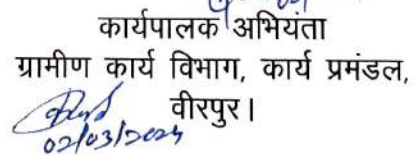 कार्यपालक अभियंता
ग्रामीण कार्य विभाग, कार्य प्रमंडल,
वीरपुर।
02/03/2024